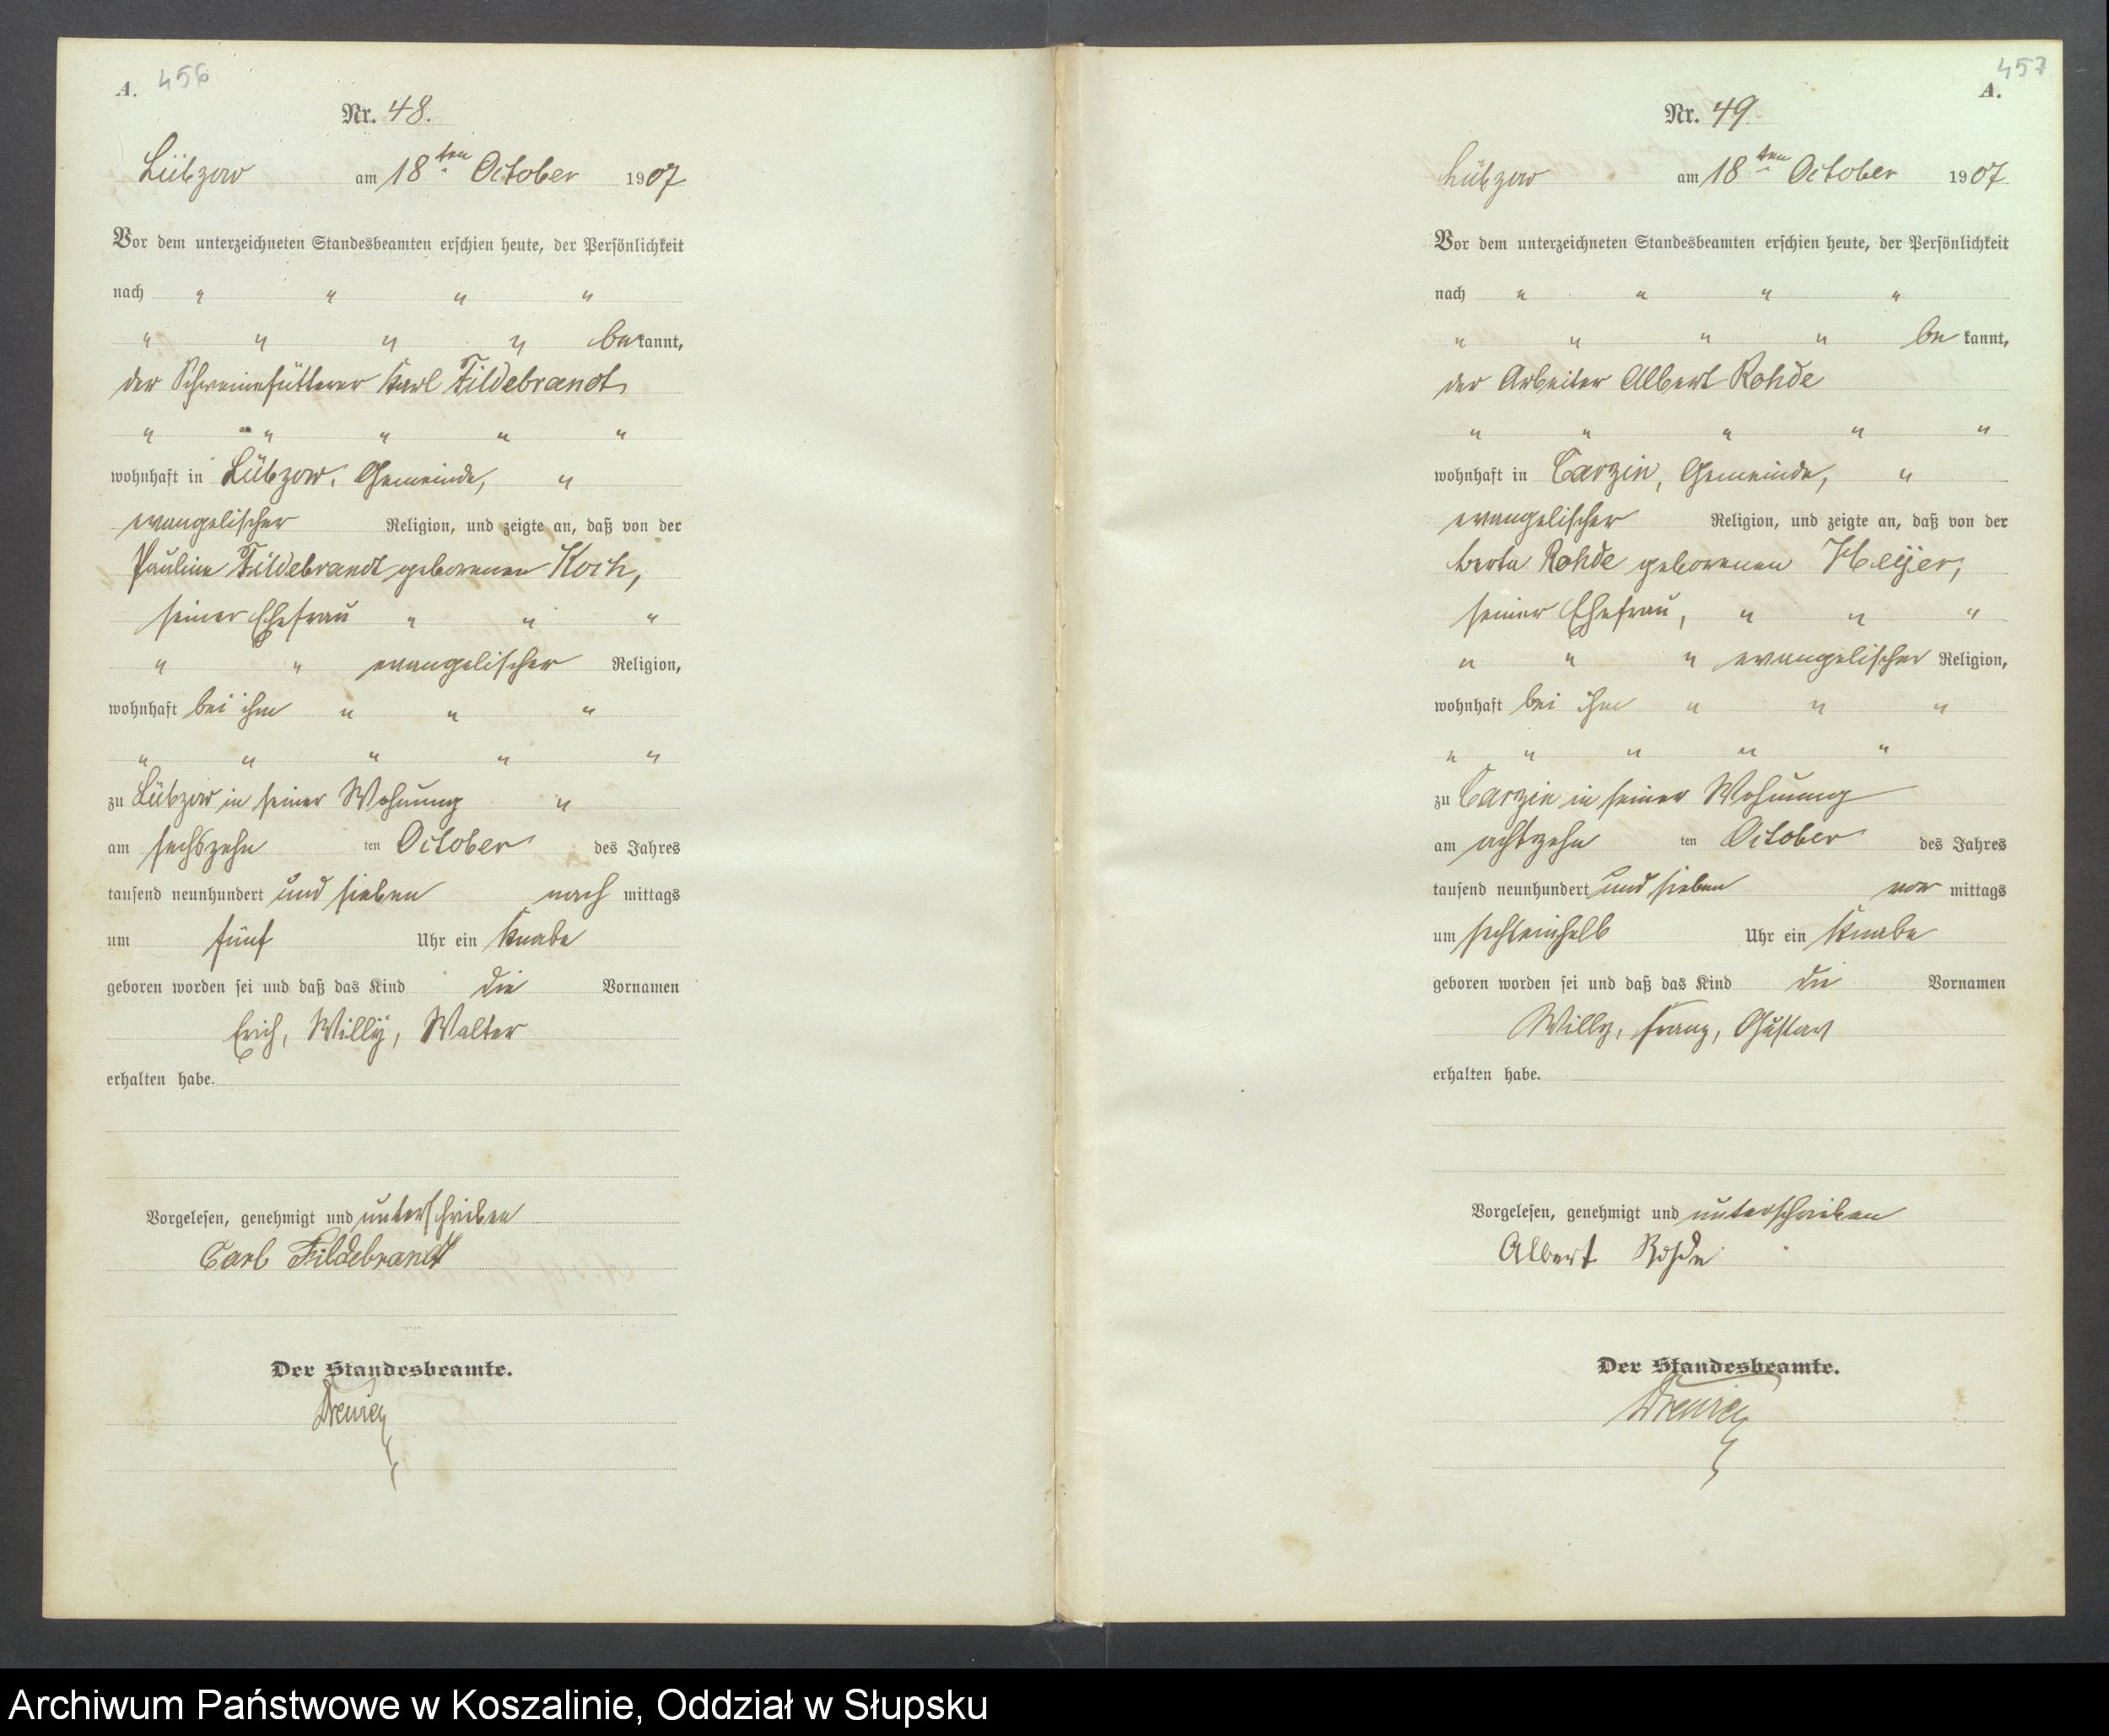 A. 456
Nr. 48.
Lübzow am 18ten October 1907
Vor dem unterzeichneten Standesbeamten erschien heute, der Persönlichkeit
nach " " " "
" " " " bekannt,
der Schweinefütterer Karl Fildebrandt
" " " " "
wohnhaft in Lübzow, Gemeinde, "
evangelischer Religion, und zeigte an, daß von der
Pauline Fildebrandt geborenen Koch,
seiner Ehefrau " " "
" " evangelischer Religion,
wohnhaft bei ihm " " "
" " " " "
zu Lübzow in seiner Wohnung "
am sechszehn ten October des Jahres
tausend neunhundert und sieben nach mittags
um fünf Uhr ein Knabe
geboren worden sei und daß das Kind die Vornamen
Erich, Willÿ, Walter
erhalten habe.
Vorgelesen, genehmigt und unterschrieben
Carl Fildebrandt
Der Standesbeamte.
457
A.
Nr. 49.
Lübzow am 18ten October 1907.
Vor dem unterzeichneten Standesbeamten erschien heute, der Persönlichkeit
nach " " " "
" " " " bekannt,
der Arbeiter Albert Rohde
" " " " "
wohnhaft in Carzin, Gemeinde, "
evangelischer Religion, und zeigte an, daß von der
Berta Rohde geborenen Heÿer,
seiner Ehefrau, " " "
" " " evangelischer Religion,
wohnhaft bei ihm " " "
" " " " "
zu Carzin in seiner Wohnung
am achtzehn ten October des Jahres
tausend neunhundert und sieben vor mittags
um sechseinhalb Uhr ein Knabe
geboren worden sei und daß das Kind die Vornamen
Willy, Franz, Gustav
erhalten habe.
Vorgelesen, genehmigt und unterschrieben
Albert Rohde
Der Standesbeamte.
Archiwum Państwowe w Koszalinie, Oddział w Słupsku